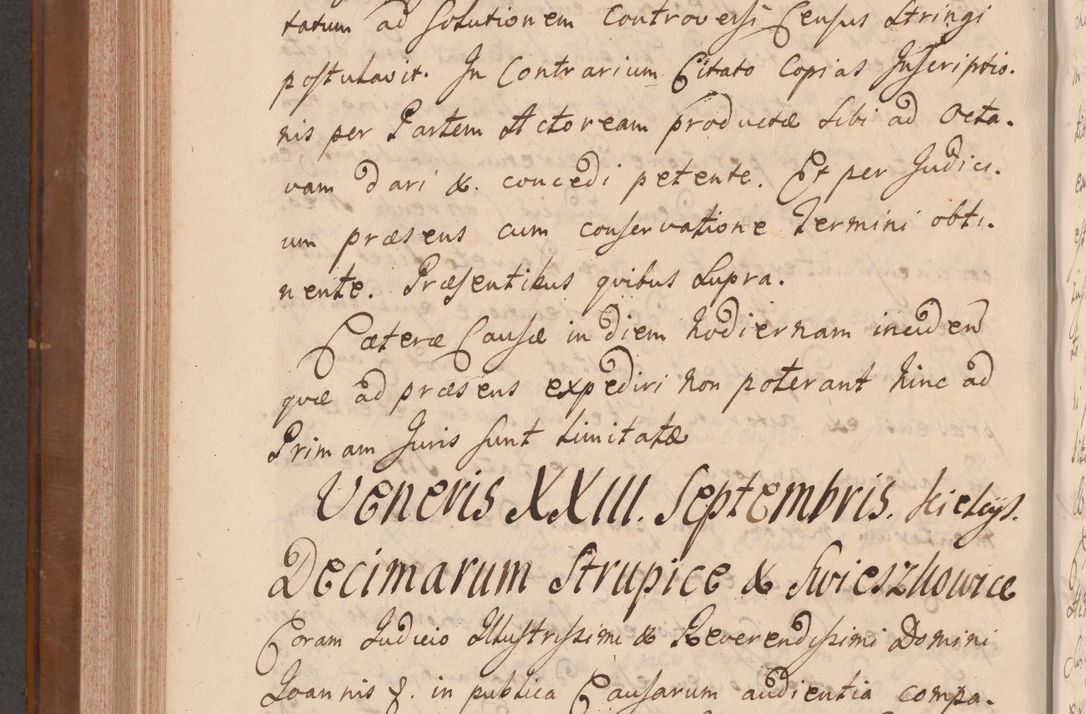 tatum ad Solutionem Controversi Census Stringi
postulavit. In Contrarium Citato Copias Inscriptio.
nis per Partem Actoream productæ sibi ad Octa.
vam dari &. concedi petente. Et per Judici.
um præsens cum conservatione Termini obti.
nente. Præsentibus quibus supra.
Cæteræ Causæ in diem hodiernam inciden
quæ ad præsens expediri non poterant hinc ad
Primam Juris sunt limitatæ
Veneris XXIII. Septembris. Kielcys.
Decimarum Strupice & Swieszkowice
Coram Judicio Illustrissimi & Reverendissimi Domini
Joannis &. in publica Causarum audientia compa.